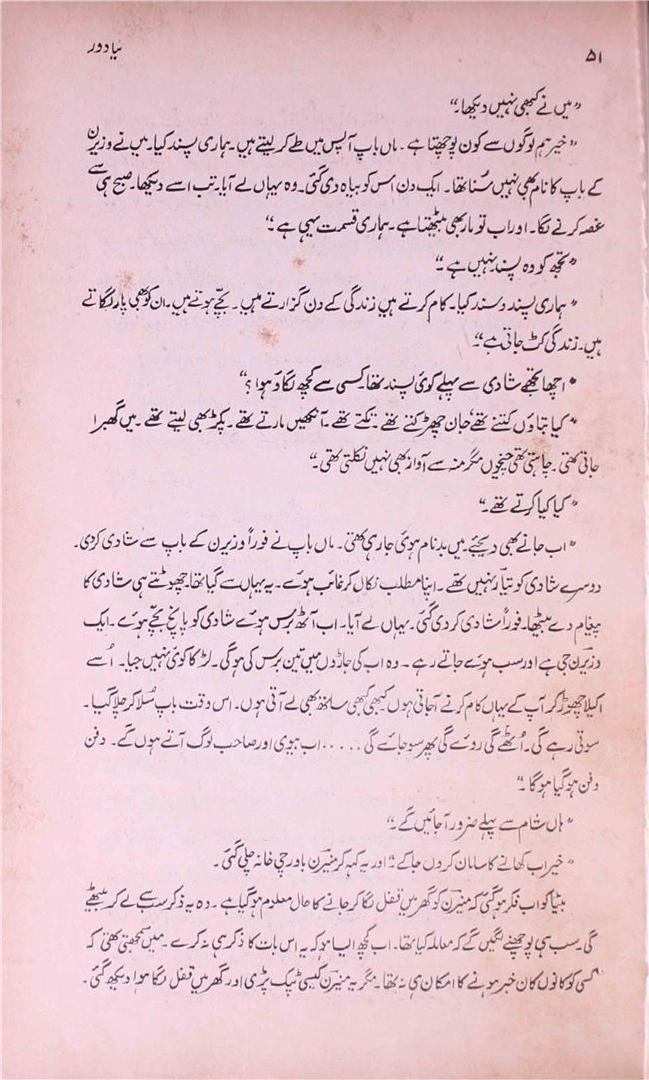 ۵۱ نیا دور
"میں نے کبھی نہیں دیکھا۔"
"خیر ہم لوگوں سے کون پوچھتا ہے۔ ماں باپ آپس میں طے کر لیتے ہیں۔ ہماری پسند کیا۔ میں نے وزیرن
کے باپ کا نام بھی نہیں سُنا تھا۔ ایک دن اس کو بیاہ دی گئی۔ وہ یہاں لے آیا۔ تب اسے دیکھا۔ صبح ہی سے
غصہ کرنے لگا۔ اور اب تو مار بھی بیٹھتا ہے۔ ہماری قسمت یہی ہے۔"
"تجھ کو وہ پسند نہیں ہے۔"
"ہماری پسند وسند کیا۔ کام کرتے ہیں زندگی کے دن گزارتے ہیں۔ بچے ہوتے ہیں۔ ان کو بھی پار لگاتے
ہیں۔ زندگی کٹ جاتی ہے۔"
"اچھا تجھے شادی سے پہلے کوئی پسند تھا۔ کسی سے کچھ لگاؤ ہوا؟"
"کیا بتاؤں کتنے تھے، جان چھڑکتے تھے۔ تکتے تھے۔ آنکھیں مارتے تھے۔ پکڑ بھی لیتے تھے۔ میں گھبرا
جاتی تھی۔ چاہتی تھی چیخوں مگر منہ سے آواز بھی نہیں نکلتی تھی۔"
"کیا کیا کرتے تھے۔"
"اب جانے بھی دیجئے۔ میں بدنام ہوئی جا رہی تھی۔ ماں باپ نے فوراً وزیرن کے باپ سے شادی کر دی۔
دوسرے شادی کو تیار نہیں تھے۔ اپنا مطلب نکال کر غائب ہوئے۔ یہ یہاں سے گیا تھا۔ چھوٹتے ہی شادی کا
پیغام دے بیٹھا۔ فوراً شادی کر دی گئی۔ یہاں لے آیا۔ اب آٹھ برس ہوئے شادی کو پانچ بچے ہوئے۔ ایک
وزیرن جی ہے اور سب ہوئے جاتے رہے۔ وہ اب کی جاڑوں میں تین برس کی ہوگی۔ لڑکا کوئی نہیں جیا۔ اُسے
اکیلا چھوڑ کر آپ کے یہاں کام کرنے آجاتی ہوں کبھی کبھی ساتھ بھی لے آتی ہوں۔ اس وقت باپ سُلا کر چلا گیا۔
سوتی رہے گی۔ اُٹھے گی روئے گی پھر سو جائے گی ..... اب بیوی اور صاحب لوگ آتے ہوں گے۔ دفن
دفن ہو گیا ہوگا۔"
"ہاں شام سے پہلے ضرور آجائیں گے۔"
"خیر اب کھانے کا سامان کروں جا کے۔" اور یہ کہہ کر منیرن باورچی خانہ چلی گئی۔
بٹیا کو اب فکر ہو گئی کہ منیرن کو گھر میں قفل لگا کر جانے کا حال معلوم ہو گیا ہے۔ وہ یہ ذکر سب سے لے کر بیٹھے
گی۔ سب ہی پوچھنے لگیں گے کہ معاملہ کیا تھا۔ اب کچھ ایسا ہو کہ یہ اس بات کا ذکر ہی نہ کرے۔ میں سمجھتی تھی کہ
کسی کو کانوں کان خبر ہونے کا امکان ہی نہ تھا۔ مگر یہ منیرن کیسی ٹپک پڑی اور گھر میں قفل لگا ہوا دیکھ گئی۔